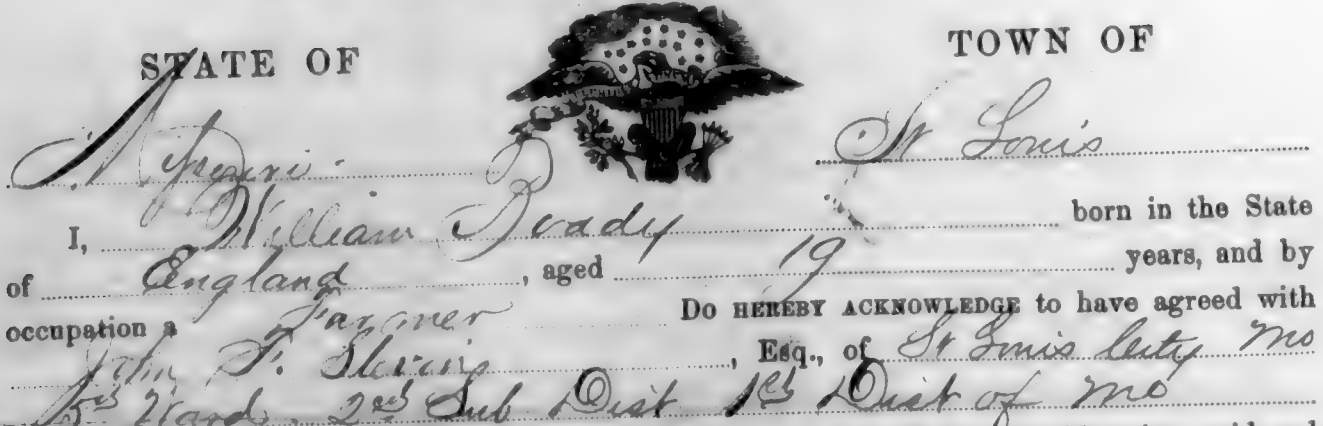 STATE OF TOWN OF
Missouri St Louis
I, William Brady born in the State
of England, aged 19 years, and by
occupation a Farmer Do HEREBY ACKNOWLEDGE to have agreed with
John F. Esq., of St Louis City Mo
Ward 2nd Sub Dist 1st Dist of Mo